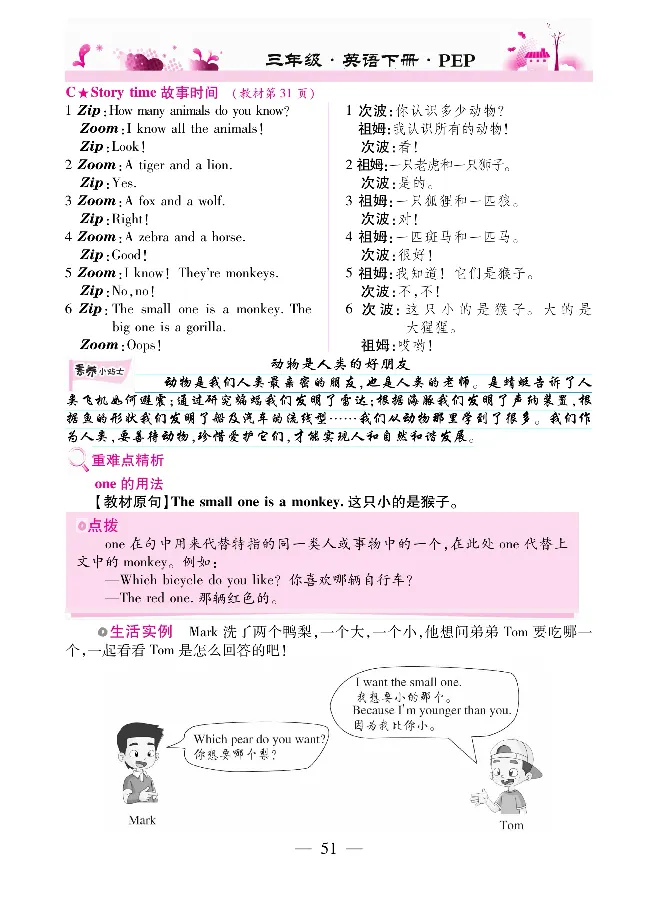 三年级·英语下册·PEP
C★Story time 故事时间 (教材第31页)
1 Zip:How many animals do you know?
Zoom:I know all the animals!
Zip:Look!
2 Zoom:A tiger and a lion.
Zip:Yes.
3 Zoom:A fox and a wolf.
Zip:Right!
4 Zoom:A zebra and a horse.
Zip:Good!
5 Zoom:I know! They're monkeys.
Zip:No,no!
6 Zip: The small one is a monkey. The
big one is a gorilla.
Zoom:Oops!
1 次波:你认识多少动物?
祖姆:我认识所有的动物!
次波:看!
2 祖姆:一只老虎和一只狮子。
次波:是的。
3 祖姆:一只狐狸和一匹狼。
次波:对!
4 祖姆:一匹斑马和一匹马。
次波:很好!
5 祖姆:我知道!它们是猴子。
次波:不,不!
6 次波:这只小的是猴子。大的是
大猩猩。
祖姆:哎哟!
素养小贴士
动物是人类的好朋友
动物是我们人类最亲密的朋友,也是人类的老师。是蜻蜓告诉了人
类飞机如何避震;通过研究蝙蝠我们发明了雷达;根据海豚我们发明了声纳装置,根
据鱼的形状我们发明了船及汽车的流线型……我们从动物那里学到了很多。我们作
为人类,要善待动物,珍惜爱护它们,才能实现人和自然和谐发展。
重难点精析
one 的用法
【教材原句】The small one is a monkey. 这只小的是猴子。
点拨
one 在句中用来代替特指的同一类人或事物中的一个,在此处 one 代替上
文中的 monkey。例如:
—Which bicycle do you like? 你喜欢哪辆自行车?
—The red one. 那辆红色的。
生活实例 Mark 洗了两个鸭梨,一个大,一个小,他想问弟弟 Tom 要吃哪一
个,一起看看 Tom 是怎么回答的吧!
I want the small one.
我想要小的那个。
Because I'm younger than you.
因为我比你小。
Which pear do you want?
你想要哪个梨?
Mark
Tom
— 51 —